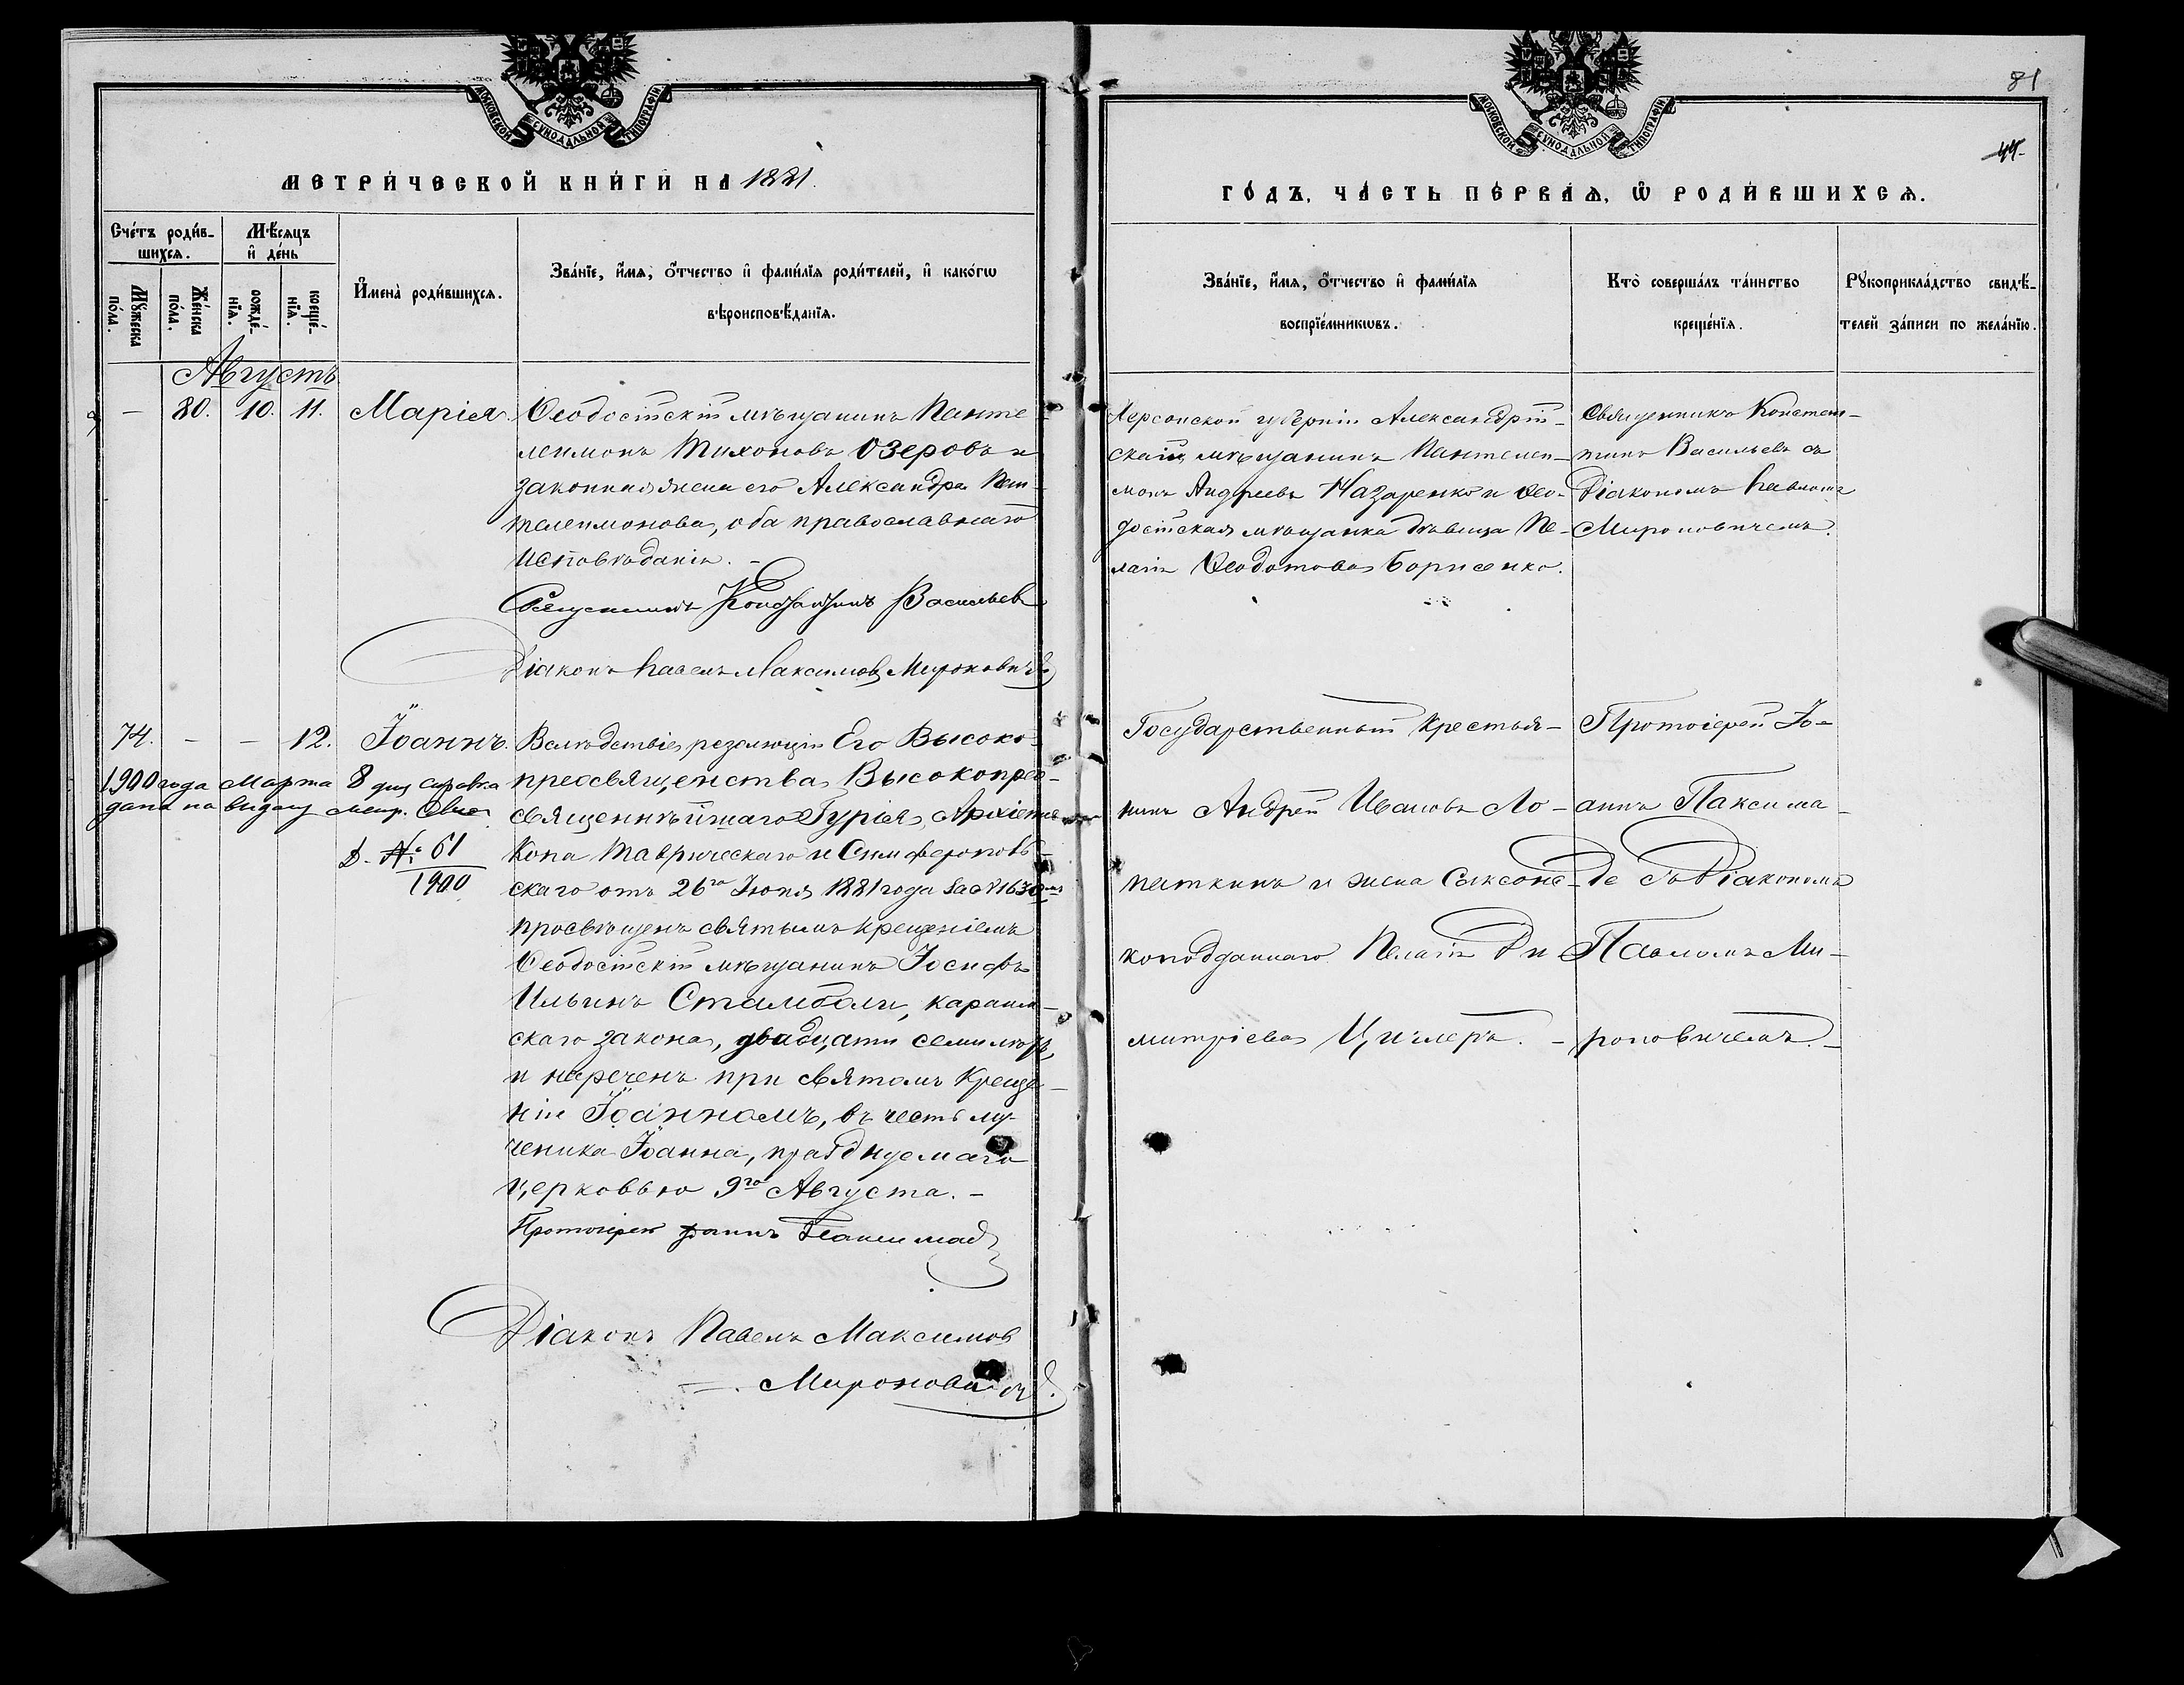 МОСКОВСКОЙ СѴНОДАЛЬНОЙ ТИПОГРАФІИ
МЕТРИ́ЧЕСКОЙ КНИ́ГИ НА 1881.
Сче́тъ роди́в-
шихся.
Мѣ́сяцъ
и҆ де́нь
Мꙋ́жеска
по́ла.
Же́нска
по́ла.
рожде́-
нїѧ.
креще́-
нїѧ.
И҆мена̀ роди́вшихся.
Зва́нїе, и҆́мѧ, ѻ҆́тчество и҆ фами́лїѧ роди́телей, и҆ како́гѡ
вѣроисповѣ́данїѧ.
Августъ
— 80. 10. 11. Марія.
Ѳеодосійскій мѣщанинъ Панте-
леимонъ Тихоновъ Озеровъ и
законная жена его Александра Пан-
телеимонова, оба православнаго
исповѣданія. –
Священникъ Константинъ Васильев
Діаконъ Павелъ Максимов Мироновичъ
74. – – 12. Іоаннъ.
1900 года Марта 8 дня справка
дана на выдачу метр.
Д. № 61
1900
Вслѣдствіе резолюціи Его Высоко-
преосвященства, Высокопрео-
священнѣйшаго Гурія, Архіепис-
копа Таврическаго и Симферополь-
скаго отъ 26го Іюня 1881 года за №
просвѣщенъ святымъ крещеніемъ
Ѳеодосійскій мѣщанинъ Іосифъ
Ильинъ Стамболи, караим-
скаго закона, двадцати семи лѣтъ,
и нареченъ при святомъ креще-
ніи Іоанномъ, въ честь му-
ченика Іоанна, празднуемаго
церковью 9го Августа. –
Протоіерей Іоаннъ Паксимад
Діаконъ Павелъ Максимов
Мироновичъ.
МОСКОВСКОЙ СѴНОДАЛЬНОЙ ТИПОГРАФІИ
81
44.
ГО́ДЪ, ЧА́СТЬ ПЕ́РВАѦ, Ѡ҆ РОДИ́ВШИХСѦ.
Зва́нїе, и҆́мѧ, ѻ҆́тчество и҆ фами́лїѧ
воспрїе́мникѡвъ.
Кто̀ соверша́лъ та́инство
креще́нїѧ.
Рꙋкоприкла́дство свидѣ́-
телей за́писи по жела́нїю.
Херсонской губерніи Александрій-
скій мѣщанинъ Пантелеи-
монъ Андреевъ Назаренко и Ѳео-
досійская мѣщанка дѣвица Пе-
лагія Ѳеодотова Борисенко.
Священникъ Констан-
тинъ Васильевъ съ
Діакономъ Павломъ
Мироновичемъ.
Государственный крестья-
нинъ Андрей Ивановъ Ло-
паткинъ и жена Саксоно-
коподданнаго Пелагія Ди
митріева Циглеръ. –
Протоіерей Іо-
аннъ Паксима-
де съ Діакономъ
Павломъ Ми-
роновичемъ. –